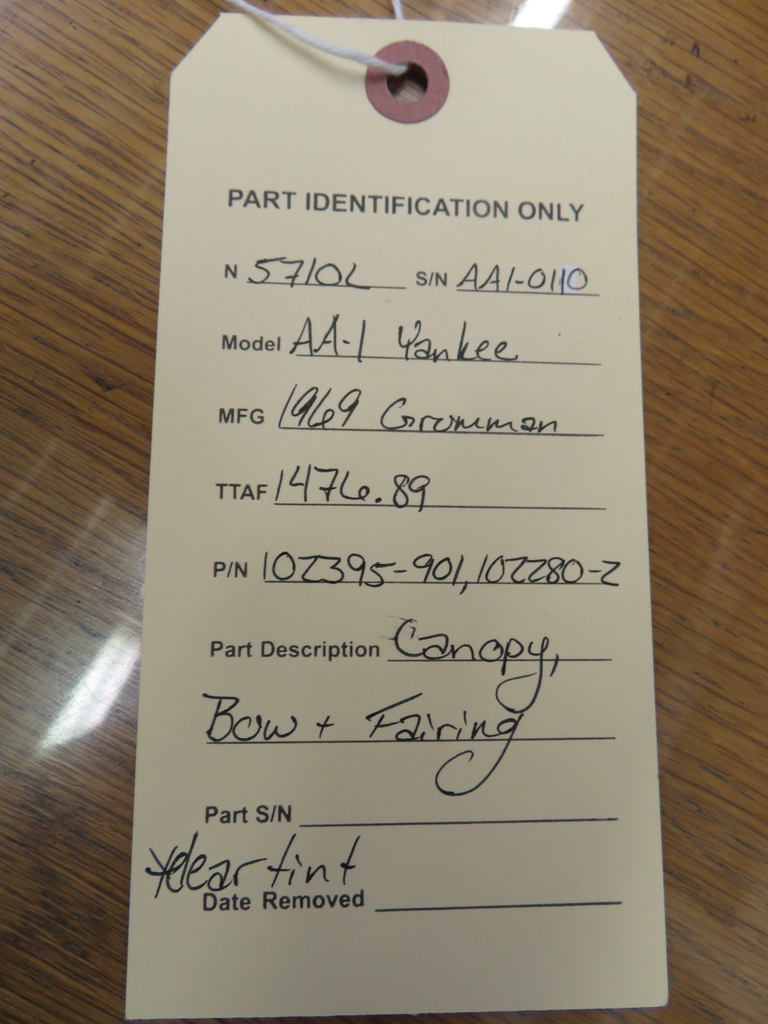 PART IDENTIFICATION ONLY
N 5710L S/N AA1-0110
Model AA-1 Yankee
MFG 1969 Grumman
TTAF 1476.89
P/N 102395-901, 102280-2
Part Description Canopy,
Bow + Fairing
Part S/N
*clear tint
Date Removed